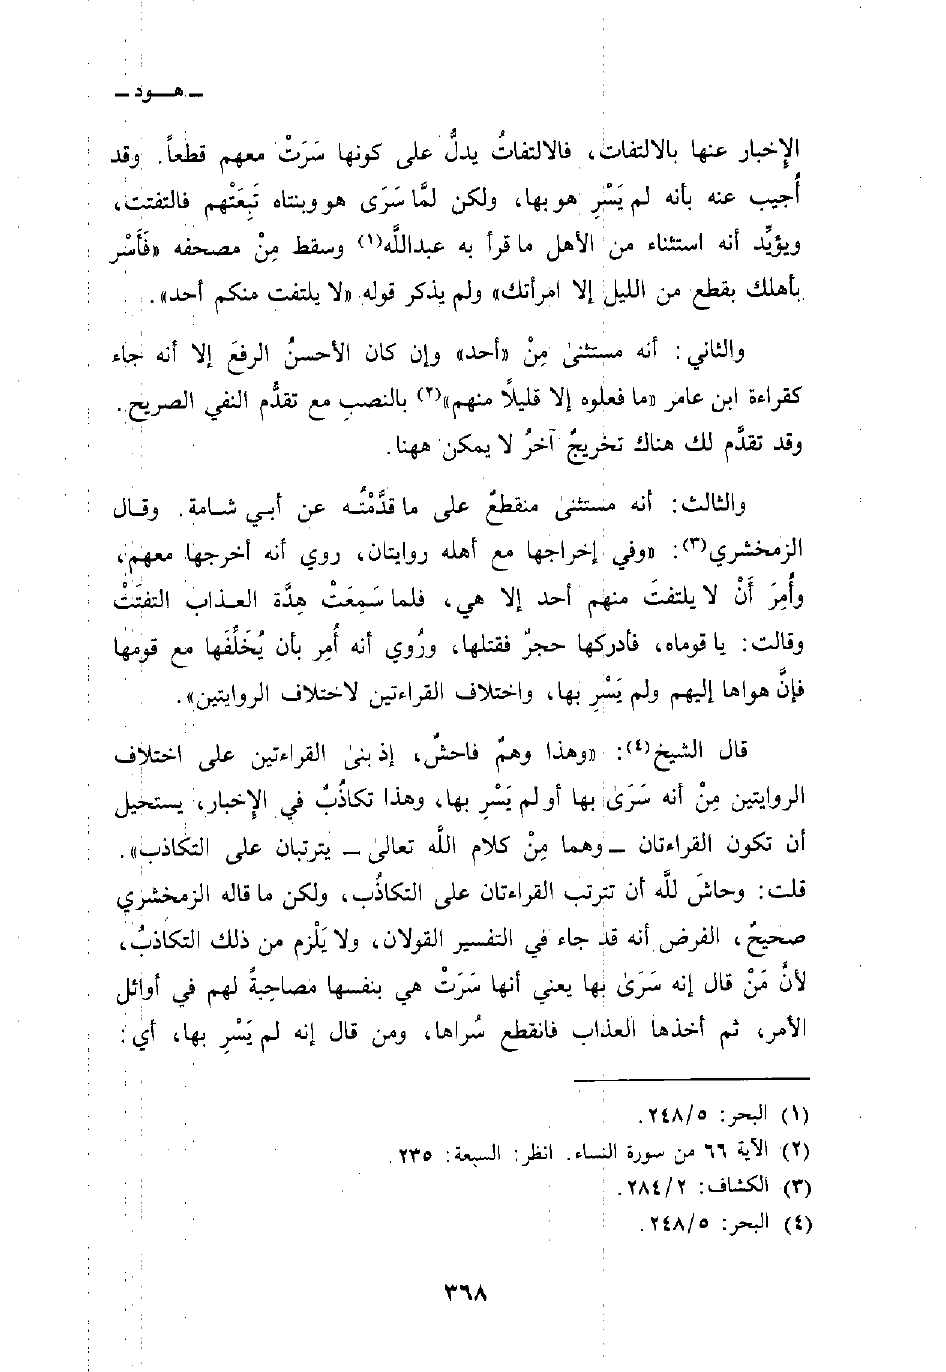 ـ هـــود ـ
الإِخبار عنها بالالتفات، فالالتفاتُ يدلُّ على كونها سَرَتْ معهم قطعاً. وقد
أُجيب عنه بأنه لم يَسْرِ هو بها، ولكن لمَّا سَرَى هو وبنتاه تَبِعَتْهم فالتفتت،
ويؤيِّد أنه استثناء من الأهل ما قرأ به عبدالله(١) وسقط مِنْ مصحفه «فَأَسْر
بأهلك بقطع من الليل إلا امرأتك» ولم يذكر قوله «لا يلتفت منكم أحد».
والثاني: أنه مستثنىٰ مِنْ «أحد» وإن كان الأحسنُ الرفعَ إلا أنه جاء
كقراءة ابن عامر «ما فعلوه إلا قليلاً منهم»(٢) بالنصبِ مع تقدُّم النفي الصريح.
وقد تقدَّم لك هناك تخريجٌ آخرُ لا يمكن ههنا.
والثالث: أنه مستثنىٰ منقطعٌ على ما قدَّمْتُـه عن أبـي شـامة. وقـال
الزمخشري(٣): «وفي إخراجها مع أهله روايتان، روي أنه أخرجها معهم،
وأُمِرَ أَنْ لا يلتفتَ منهم أحد إلا هي، فلما سَمِعَتْ هِدَّة العـذاب التفتَتْ
وقالت: يا قوماه، فأدركها حجرٌ فقتلها، ورُوي أنه أُمِر بأن يُخَلِّفَها مع قومها
فإنَّ هواها إليهم ولم يَسْرِ بها، واختلاف القراءتين لاختلاف الروايتين».
قال الشيخ(٤): «وهذا وهمٌ فاحشٌ، إذ بنىٰ القراءتين على اختلاف
الروايتين مِنْ أنه سَرَىٰ بها أو لم يَسْرِ بها، وهذا تكاذُبٌ في الإِخبار، يستحيل
أن تكون القراءتان ـ وهما مِنْ كلام اللَّه تعالىٰ ـ يترتبان على التكاذب».
قلت: وحاشَ للَّه أن تترتب القراءتان على التكاذُب، ولكن ما قاله الزمخشري
صحيحٌ، الفرض أنه قد جاء في التفسير القولان، ولا يَلْزم من ذلك التكاذبُ،
لأنَّ مَنْ قال إنه سَرَىٰ بها يعني أنها سَرَتْ هي بنفسها مصاحِبةً لهم في أوائل
الأمر، ثم أخذها العذاب فانقطع سُراها، ومن قال إنه لم يَسْرِ بها، أي:
(١) البحر: ٢٤٨/٥.
(٢) الآية ٦٦ من سورة النساء. انظر: السبعة: ٢٣٥.
(٣) الكشاف: ٢٨٤/٢.
(٤) البحر: ٢٤٨/٥.
٣٦٨